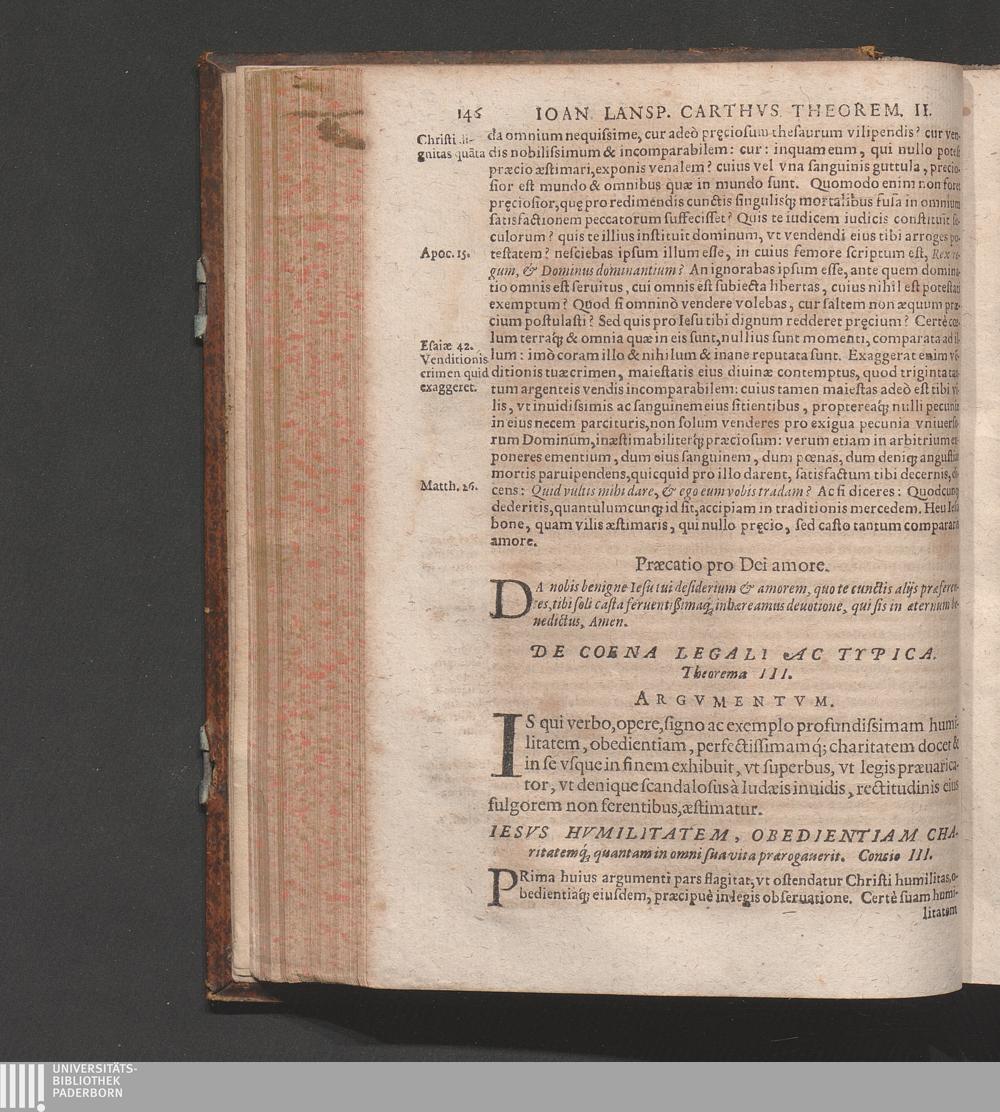 146 IOAN. LANSP. CARTHVS. THEOREM. II.
Christi di-
gnitas quãta
da omnium nequiſsime, cur adeò pręcioſum theſaurum vilipendis? cur ven-
dis nobiliſsimum & incomparabilem: cur: inquam eum, qui nullo poteſt
præcio æſtimari, exponis venalem? cuius vel vna ſanguinis guttula, precio-
ſior eſt mundo & omnibus quæ in mundo ſunt. Quomodo enim non foret
pręcioſior, quę pro redimendis cunctis ſingulisq́; mortalibus fuſa in omnium
ſatisfactionem peccatorum ſuffeciſſet? Quis te iudicem iudicis conſtituit ſe-
culorum? quis te illius inſtituit dominum, vt vendendi eius tibi arroges po-
Apoc. 15.
teſtatem? neſciebas ipſum illum eſſe, in cuius femore ſcriptum eſt, Rex re-
gum, & Dominus dominantium? An ignorabas ipſum eſſe, ante quem domina-
tio omnis eſt ſeruitus, cui omnis eſt ſubiecta libertas, cuius nihil eſt poteſtati
exemptum? Quod ſi omninò vendere volebas, cur ſaltem non æquum præ-
cium poſtulaſti? Sed quis pro Ieſu tibi dignum redderet pręcium? Certè cœ-
Eſaiæ 42.
Venditionis
crimen quid
exaggeret.
lum terraq́; & omnia quæ in eis ſunt, nullius ſunt momenti, comparata ad il-
lum: imò coram illo & nihilum & inane reputata ſunt. Exaggerat enim vē-
ditionis tuæ crimen, maieſtatis eius diuinæ contemptus, quod triginta tan-
tum argenteis vendis incomparabilem: cuius tamen maieſtas adeò eſt tibi vi-
lis, vt inuidiſsimis ac ſanguinem eius ſitientibus, proptereaq́; nulli pecuniæ
in eius necem parcituris, non ſolum venderes pro exigua pecunia vniuerſo-
rum Dominum, inæſtimabiliterq́; præcioſum: verum etiam in arbitrium ex-
poneres ementium, dum eius ſanguinem, dum pœnas, dum deniq; anguſtias
mortis paruipendens, quicquid pro illo darent, ſatisfactum tibi decernis, di-
Matth. 26.
cens: Quid vultis mihi dare, & ego eum vobis tradam? Ac ſi diceres: Quodcunq;
dederitis, quantulumcunq; id ſit, accipiam in traditionis mercedem. Heu Ieſu
bone, quam vilis æſtimaris, qui nullo pręcio, ſed caſto tantum compararis
amore.
Præcatio pro Dei amore.
DA nobis benigne Ieſu tui deſiderium & amorem, quo te cunctis alijs præferen-
tes, tibi ſoli caſta feruentiſsimaq́; inhæreamus deuotione, qui ſis in æternum be-
nedictus, Amen.
DE COENA LEGALI AC TYPICA.
Theorema III.
ARGVMENTVM.
IS qui verbo, opere, ſigno ac exemplo profundiſsimam humi-
litatem, obedientiam, perfectiſſimamq́; charitatem docet &
in ſe vſque in finem exhibuit, vt ſuperbus, vt legis præuarica-
tor, vt denique ſcandaloſus à Iudæis inuidis, rectitudinis eius
fulgorem non ferentibus, æſtimatur.
IESVS HVMILITATEM, OBEDIENTIAM CHA-
ritatemq́; quantam in omni ſua vita prærogauerit. Concio III.
PRima huius argumenti pars flagitat, vt oſtendatur Chriſti humilitas, o-
bedientiaq́; eiuſdem, præcipuè in legis obſeruatione. Certè ſuam humi-
litatem
UNIVERSITÄTS-
BIBLIOTHEK
PADERBORN